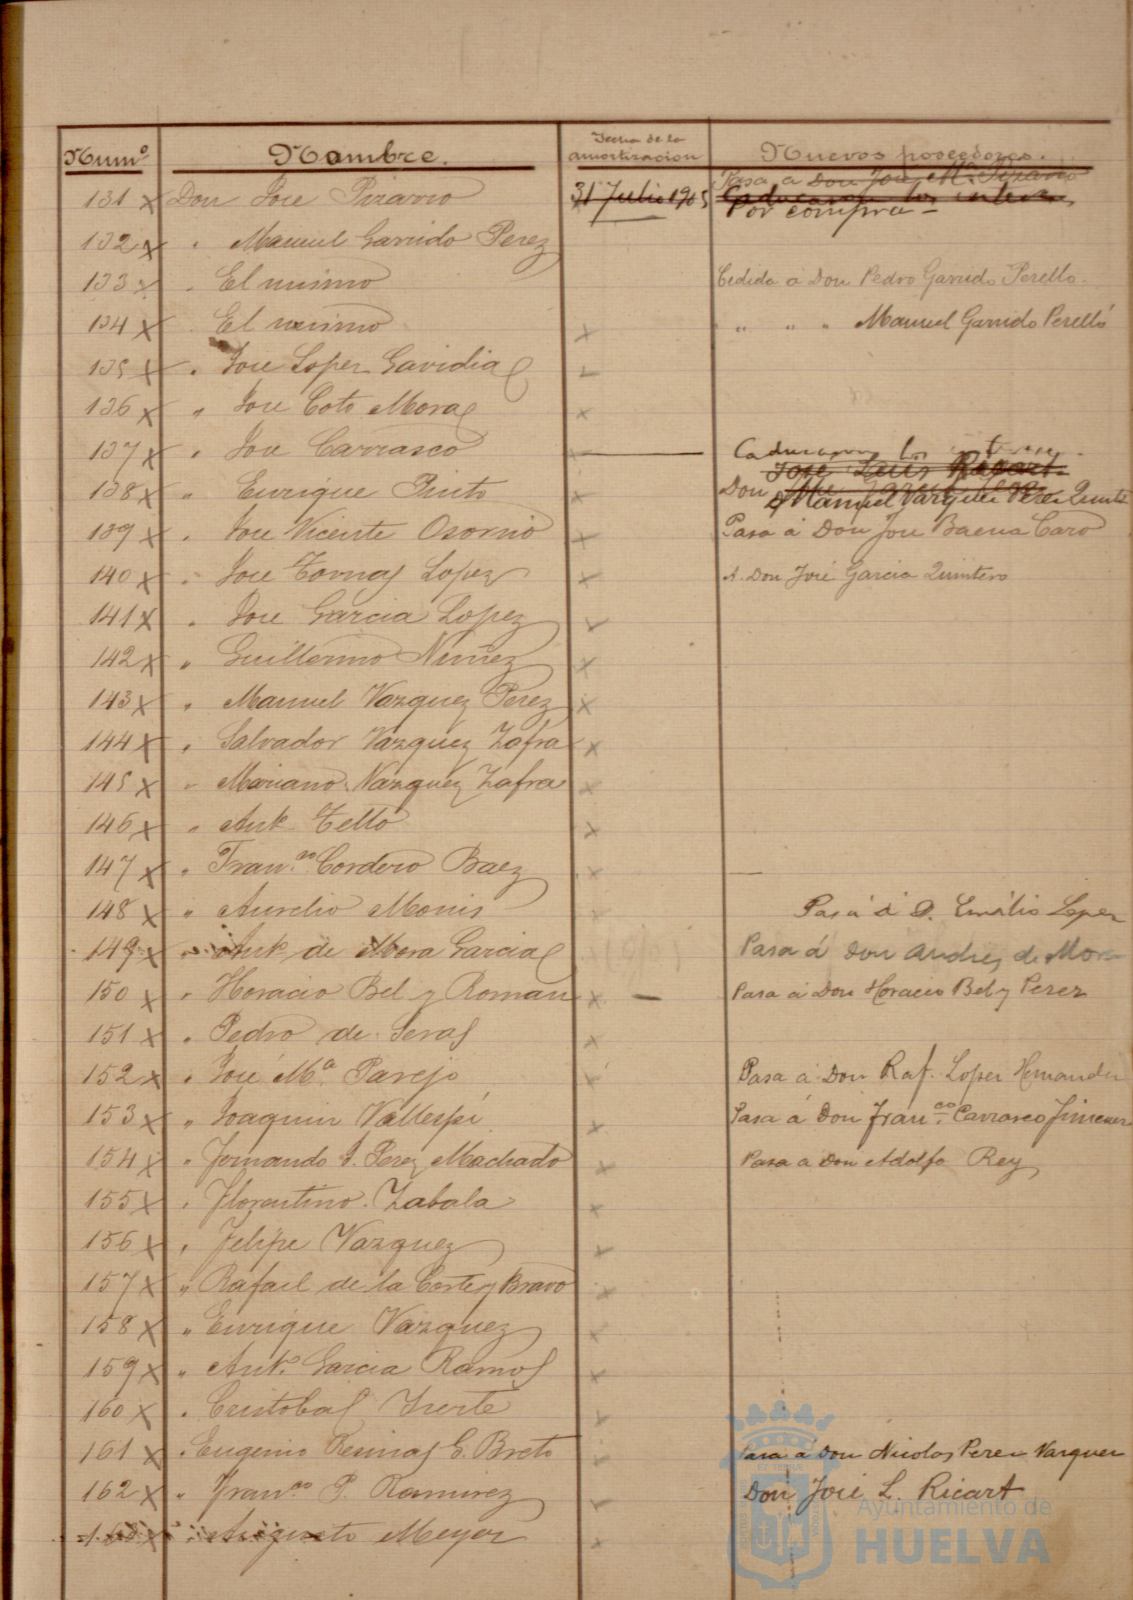 Num.º Nombre. Fecha de la amortizacion Nuevos poseedores.
131 x Don Jose Pizarro 31 Julio 1905 Pasa a Don Jose Mª Pizarro
Caducaron los intereses
Por compra
132 x " Manuel Garrido Perez
133 x " El mismo Cedida a Don Pedro Garrido Perello.
134 x " El mismo x " " " Manuel Garrido Perelló
135 x " Jose Lopez Gavidia
136 x " Jose Coto Mora x
137 x " Jose Carrasco Caducaron los intereses
138 x " Enrique Pinto x Don Jose Luis Ricart
Manuel Vazquez Perez Quint
139 x " Jose Vicente Osorno x Pasa á Don Jose Baena Caro
140 x " Jose Tornas Lopez x A. Don José Garcia Quintero
141 x " Jose Garcia Lopez
142 x " Guillermo Nuñez x
143 x " Manuel Vazquez Perez x
144 x " Salvador Vazquez Zafra x
145 x " Mariano Vazquez Zafra x
146 x " Antº Tello x
147 x " Fran.co Cordero Baez x
148 x " Aurelio Monis Pasa á D. Emilio Lopez
149 x " Antº de Mora Garcia Pasa á Don Andres de Mora
150 x " Horacio Bel y Roman x — Pasa a Don Horacio Bel y Perez
151 x " Pedro de Seras x
152 x " José Mª Parejo Pasa a Don Raf. Lopez Hernandez
153 x " Joaquin Vallespí x Pasa á Don Fran.co Carrasco Jimenez
154 x " Fernando J. Perez Machado x Pasa a Don Adolfo Rey
155 x " Florentino Zabala x
156 x " Felipe Vazquez x
157 x " Rafael de la Corte y Bravo x
158 x " Enrique Vazquez x
159 x " Antº Garcia Ramos x
160 x " Cristobal
161 x " Eugenio Resinas G. Breto x Pasa á Don Nicolas Perez Vazquez
162 x " Fran.co P. Ramirez Don José L. Ricart
163 x " Augusto Meyer
Ayuntamiento de
HUELVA